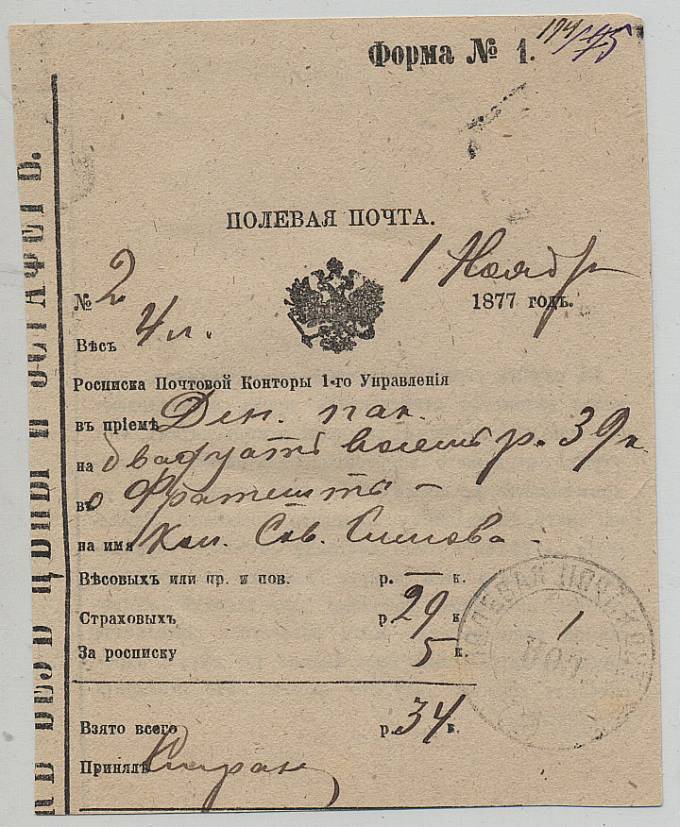 Форма № 1.
ПОЛЕВАЯ ПОЧТА.
1 Ноябр
№ 2
1877 годъ.
Вѣсъ 4 л.
Росписка Почтовой Конторы 1-го Управленія
въ пріемѣ Ден. пак.
на двадцать восемь р. 39 к
въ
на имя Кол. Сов.
Вѣсовыхъ или пр. и пов. р. — к.
Страховыхъ р. 29 к
За росписку 5 к.
Взято всего р. 34 к.
Принялъ
ПОЛЕВАЯ ПОЧТ.
1
НОЯ